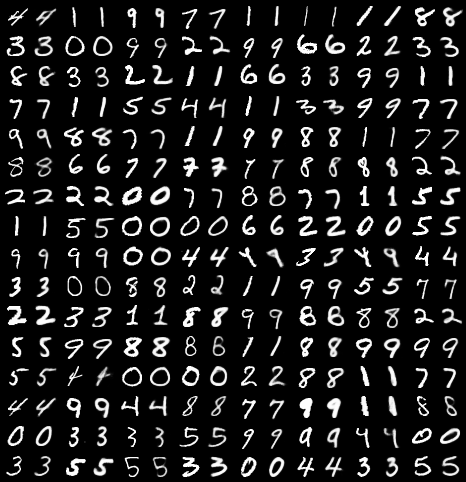 4 4 1 1 9 9 7 7 1 1 1 1 1 1 8 8
3 3 0 0 9 9 2 2 9 9 6 6 2 2 3 3
8 8 3 3 2 2 1 1 6 6 3 3 9 9 1 1
7 7 1 1 5 5 4 4 1 1 3 3 9 9 7 7
9 9 8 8 7 7 1 1 9 9 8 8 1 1 7 7
8 8 6 6 7 7 7 7 7 7 8 8 8 8 2 2
2 2 2 2 0 0 7 7 8 8 7 7 1 1 5 5
1 1 5 5 0 0 0 0 6 6 2 2 0 0 5 5
9 9 9 9 0 0 4 4 4 9 3 3 4 9 4 4
3 3 0 0 8 8 2 2 1 1 9 9 5 5 7 7
2 2 3 3 1 1 8 8 9 9 8 8 8 8 2 2
5 5 9 9 8 8 8 8 1 1 8 8 9 9 9 9
5 5 4 4 0 0 0 0 2 2 8 8 1 1 7 7
4 4 9 9 4 4 8 8 7 7 9 9 1 1 8 8
0 0 3 3 3 3 5 5 9 9 9 9 4 4 0 0
3 3 5 5 5 5 3 3 0 0 4 4 3 3 5 5